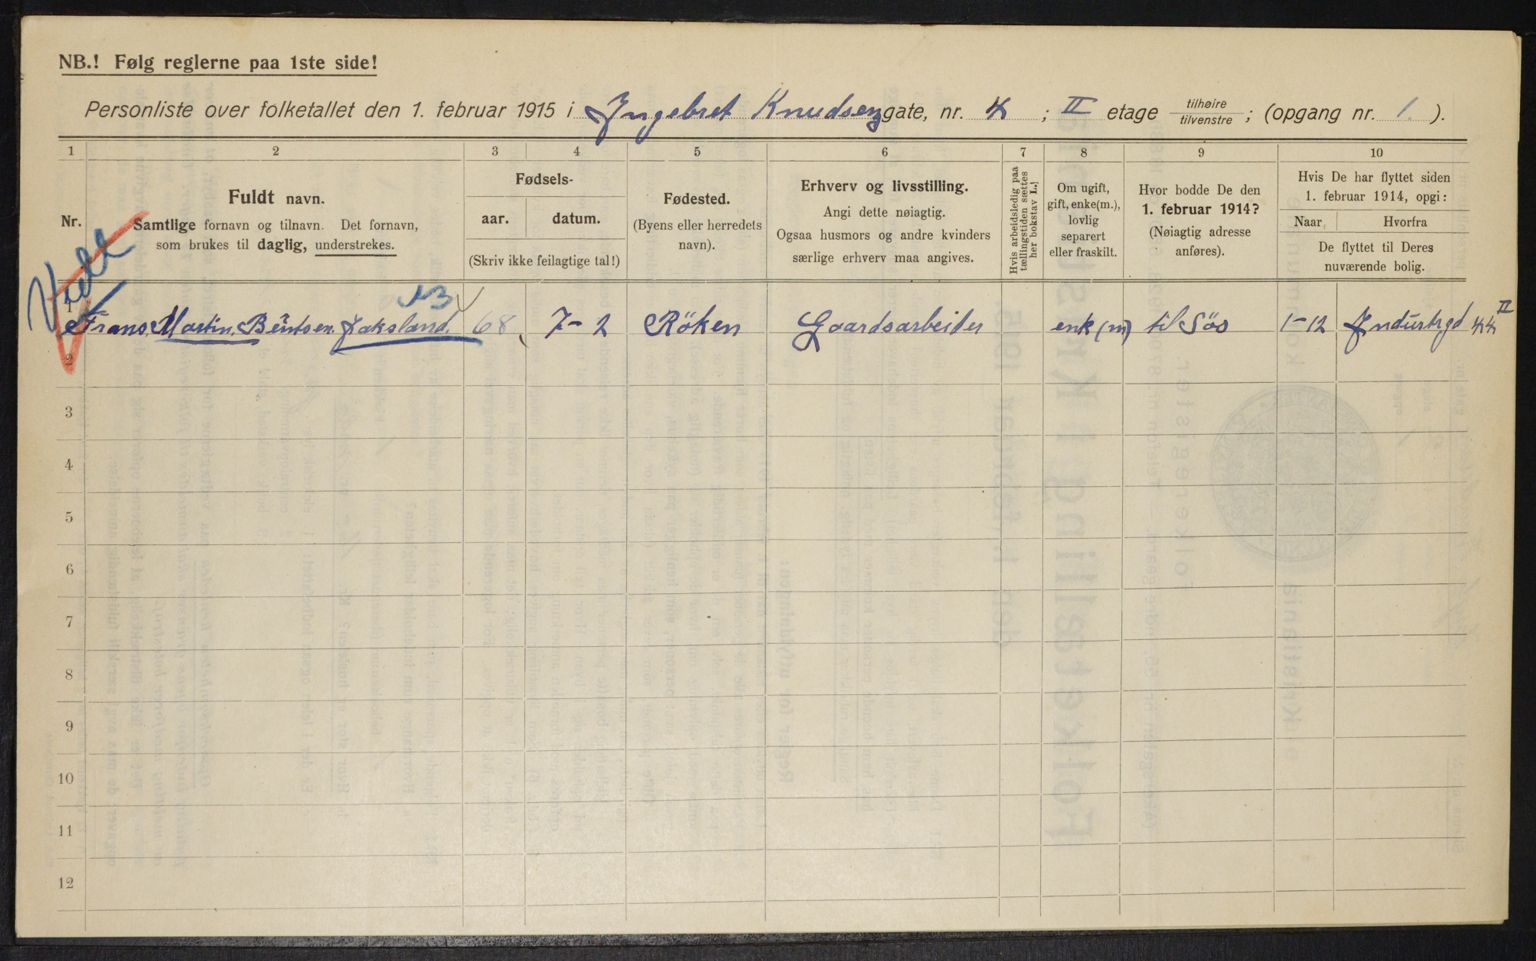 NB.! Følg reglerne paa 1ste side!
Personliste over folketallet den 1. februar 1915 i Ingebret Knudsens gate, nr. 4 ; II etage tilhøire / tilvenstre ; (opgang nr. 1. ).
1 2 3 4 5 6 7 8 9 10
Nr.
Fuldt navn.
Samtlige fornavn og tilnavn. Det fornavn,
som brukes til daglig, understrekes.
Fødsels-
aar. datum.
(Skriv ikke feilagtige tal!)
Fødested.
(Byens eller herredets
navn).
Erhverv og livsstilling.
Angi dette nøiagtig.
Ogsaa husmors og andre kvinders
særlige erhverv maa angives.
Hvis arbeidsledig paa
tællingstiden sættes
her bokstav L.
Om ugift,
gift, enke(m.),
lovlig
separert
eller fraskilt.
Hvor bodde De den
1. februar 1914?
(Nøiagtig adresse
anføres).
Hvis De har flyttet siden
1. februar 1914, opgi:
Naar Hvorfra
De flyttet til Deres
nuværende bolig.
Frans Martin Bentsen Jaksland 68 7-2 Röken Gaardsarbeider enk(m) til Søs 1-12 Industrgd 44 II
2
3
4
5
6
7
8
9
10
11
12